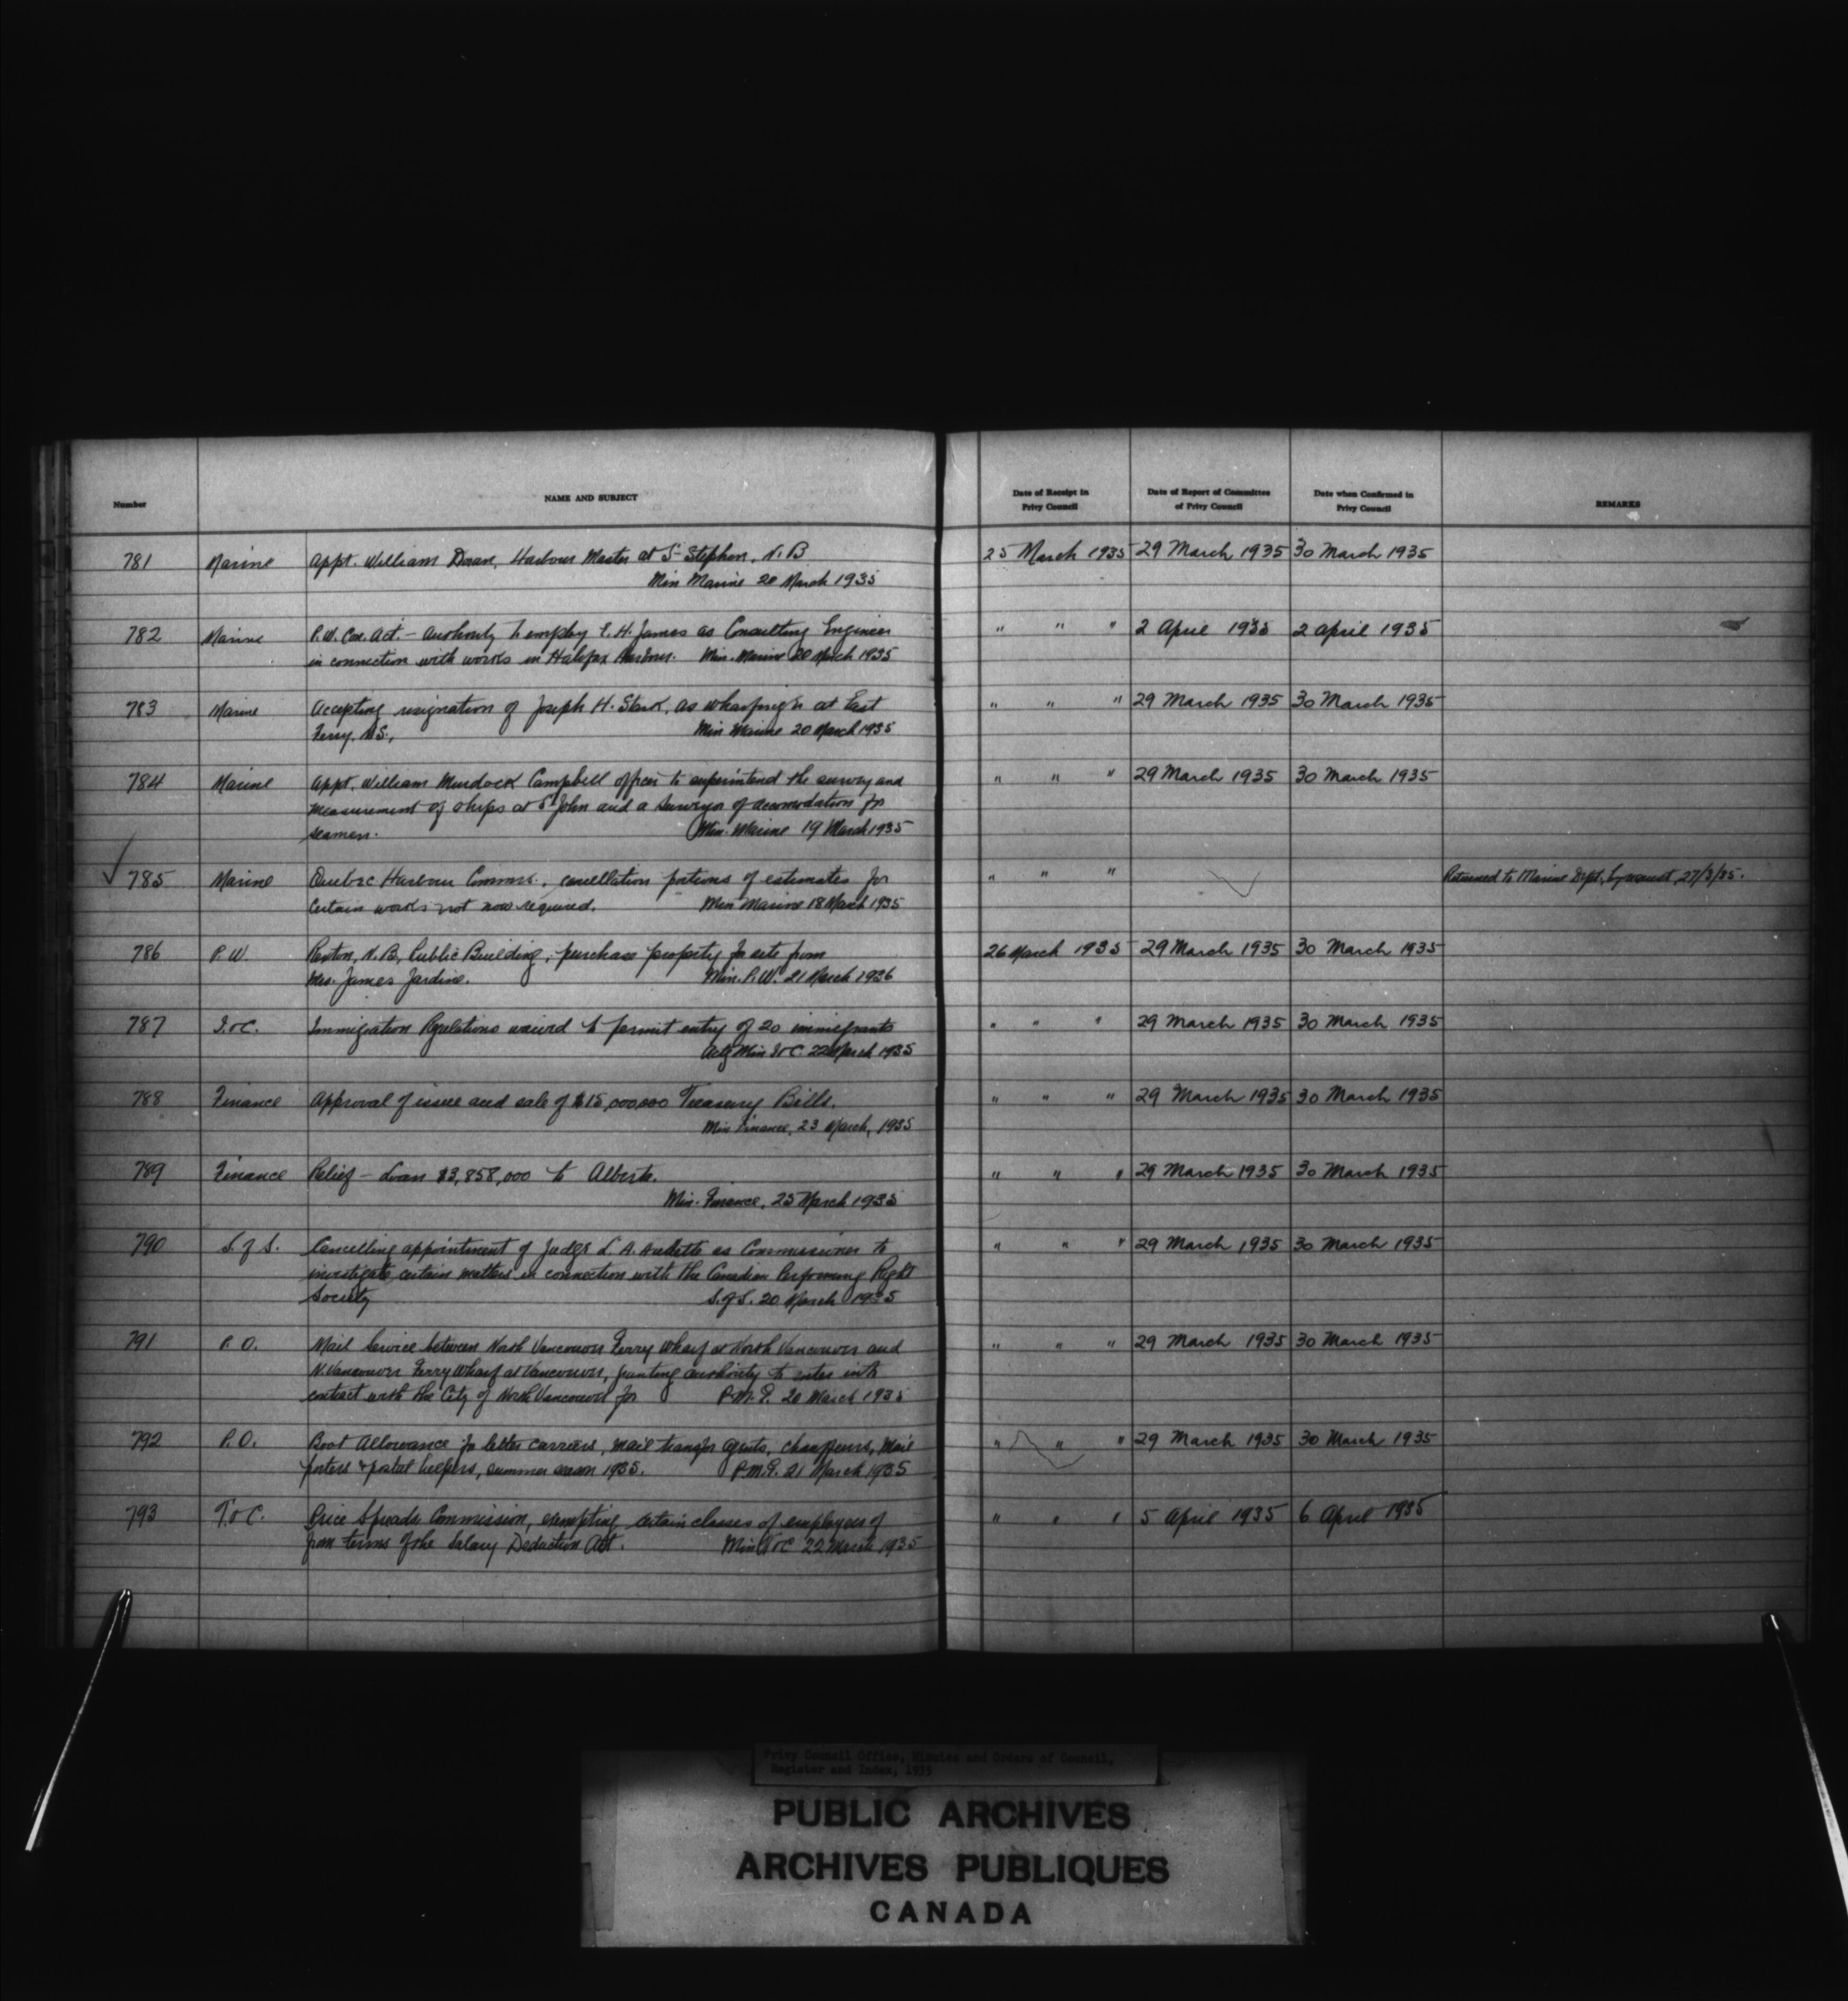 Number
NAME AND SUBJECT
Date of Receipt in
Privy Council
Date of Report of Committee
of Privy Council
Date when Confirmed in
Privy Council
REMARKS
781 Marine Appt. William Doran, Harbour Master at St Stephen, N.B 25 March 1935 29 March 1935 30 March 1935
Min Marine 20 March 1935
782 Marine P.W. Con. Act. - authority to employ E. H. James as Consulting Engineer " " " 2 April 1935 2 April 1935
in connection with works in Halifax Harbour. Min. Marine 20 March 1935
783 Marine Accepting resignation of Joseph H. Stark, as wharfinger at East " " " 29 March 1935 30 March 1935
Ferry, N.S., Min Marine 20 March 1935
784 Marine Appt. William Murdock Campbell officer to superintend the survey and " " " 29 March 1935 30 March 1935
measurement of ships at St John and a Surveyor of accomodation for
seamen. Min. Marine 19 March 1935
785 Marine Quebec Harbour Commrs., cancellation portions of estimates for " " " Returned to Marine Dept. by request, 27/3/35.
certain works not now required. Min Marine 18 March 1935
786 P.W. Rexton, N.B, Public Building, purchase property for site from 26 March 1935 29 March 1935 30 March 1935
Mrs. James Jardine. Min. P.W. 21 March 1936
787 I.&C. Immigration Regulations waived to permit entry of 20 immigrants " " " 29 March 1935 30 March 1935
Actg Min I&C. 22 March 1935
788 Finance Approval of issue and sale of $15,000,000 Treasury Bills. " " " 29 March 1935 30 March 1935
Min Finance, 23 March, 1935
789 Finance Relief - Loan $3,858,000 to Alberta. " " " 29 March 1935 30 March 1935
Min. Finance, 25 March 1935
790 S. of S. Cancelling appointment of Judge L. A. Audette as Commissioner to " " " 29 March 1935 30 March 1935
investigate certain matters in connection with the Canadian Performing Right
Society S. of S. 20 March 1935
791 P. O. Mail Service between North Vancouver Ferry Wharf at North Vancouver and " " " 29 March 1935 30 March 1935
N. Vancouver Ferry Wharf at Vancouver, granting authority to enter into
contract with the City of North Vancouver for P.M.G. 20 March 1935
792 P.O. Boot Allowance for letter carriers, mail transfer agents, chauffeurs, Mail " " " 29 March 1935 30 March 1935
porters & postal helpers, summer season 1935. P.M.G. 21 March 1935
793 T.&C. Price Spreads Commission, exempting certain classes of employees of " " " 5 April 1935 6 April 1935
from terms of the Salary Deduction Act. Min T&C 22 March 1935
Privy Council Office, Minutes and Orders of Council,
Register and Index, 1935
PUBLIC ARCHIVES
ARCHIVES PUBLIQUES
CANADA